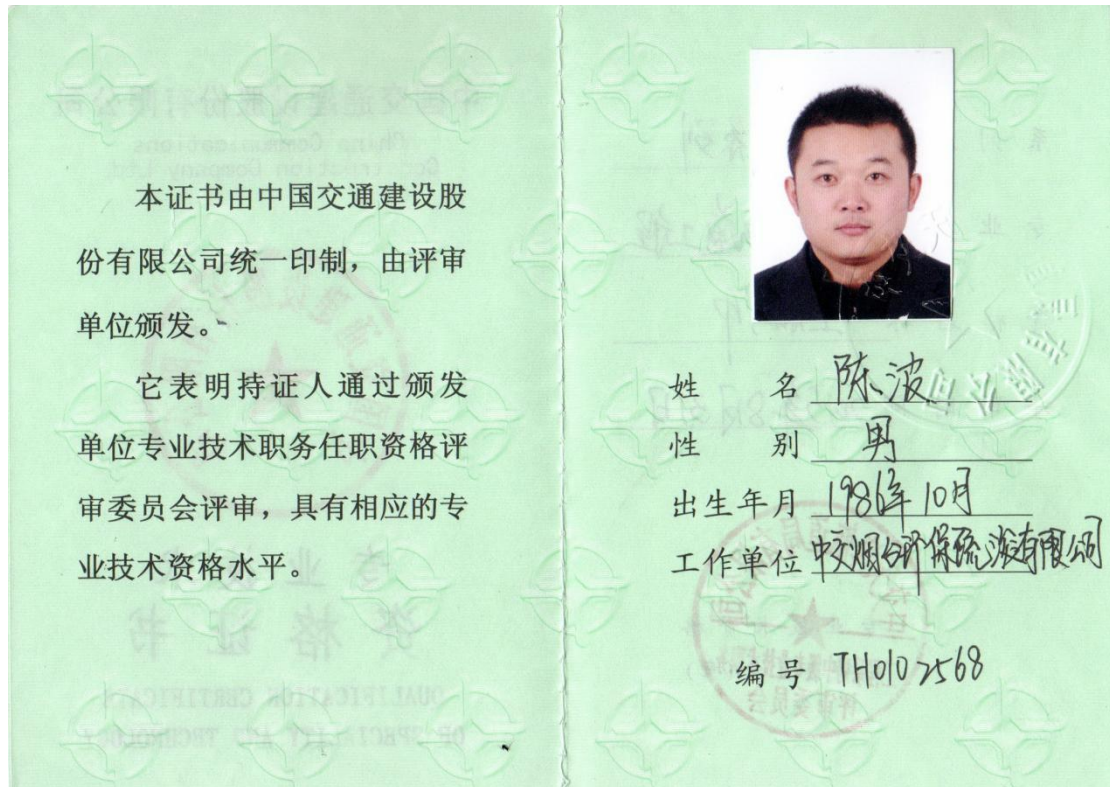 本证书由中国交通建设股
份有限公司统一印制，由评审
单位颁发。
它表明持证人通过颁发
单位专业技术职务任职资格评
审委员会评审，具有相应的专
业技术资格水平。
姓 名 陈波
性 别 男
出生年月 1986年10月
工作单位 中交烟台环保疏浚有限公司
编号 TH0102568